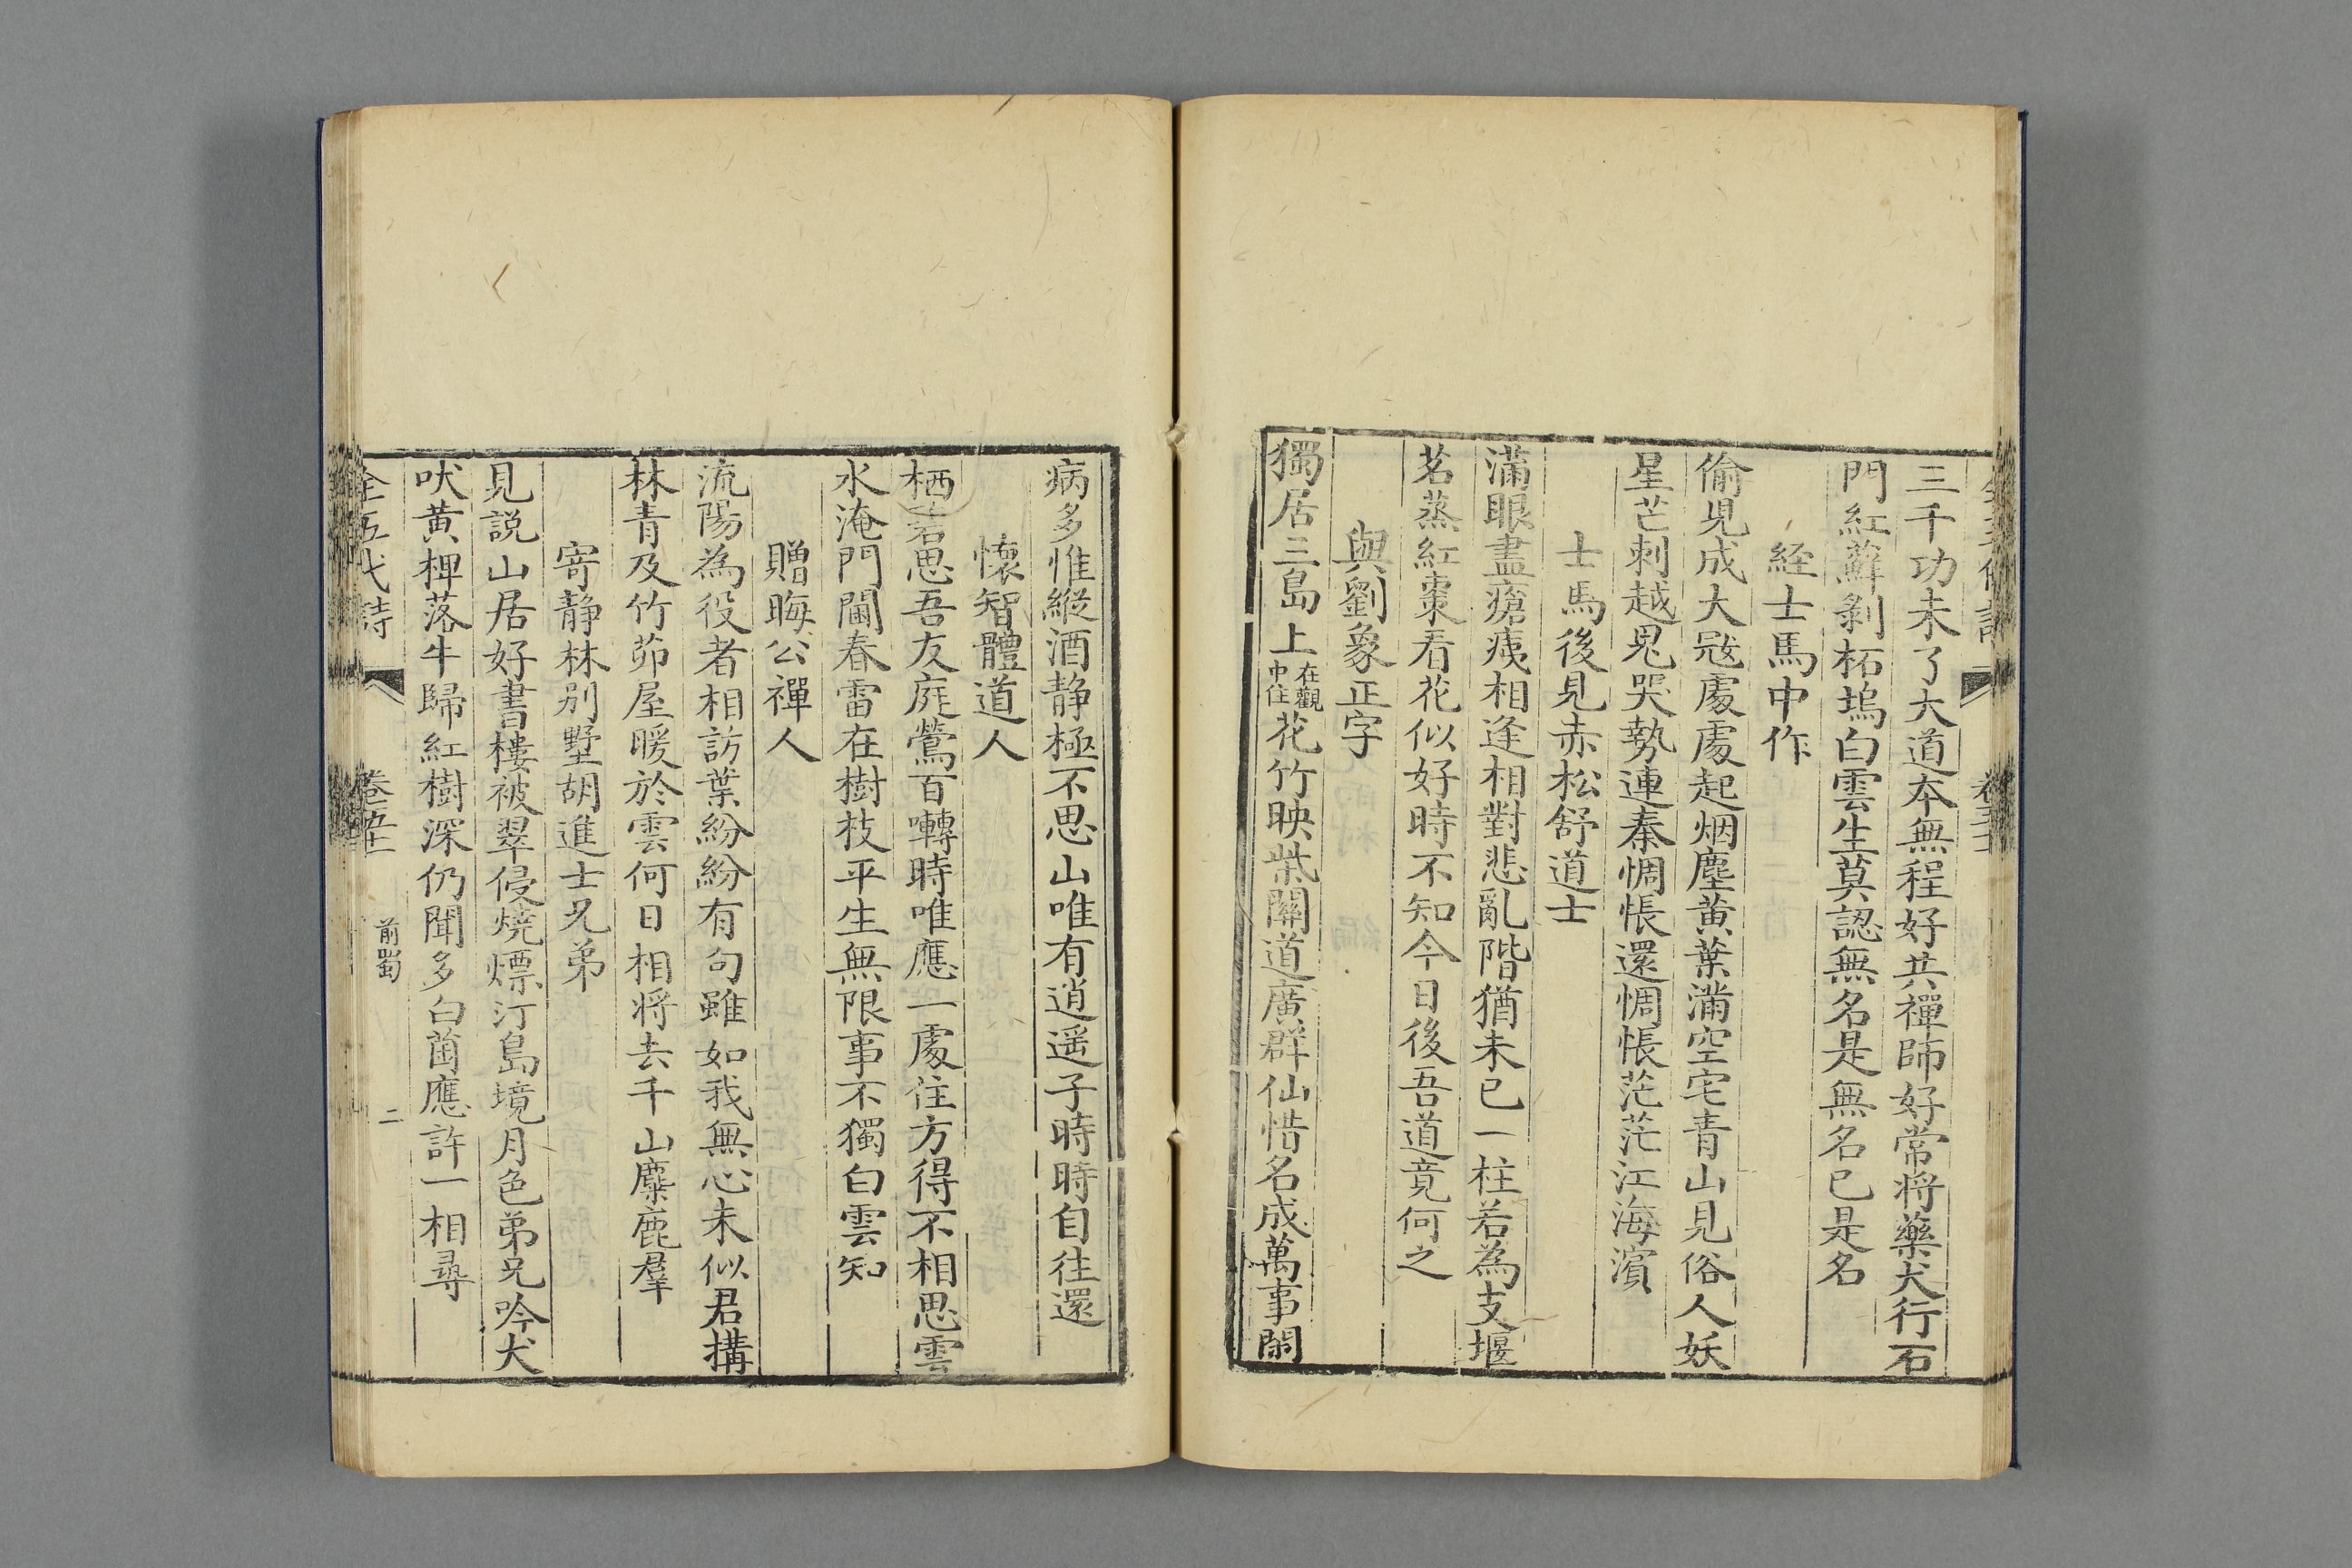 三千功未了大道本無程好共禪師好常将藥犬行石
門紅蘚剝柘塢白雲生莫認無名是無名已是名
経士馬中作
偷児成大冦處處起烟塵黄葉滿空宅青山見俗人妖
星芒刺越鬼哭勢連秦惆悵還惆悵茫茫江海濱
士馬後見赤松舒道士
滿眼盡瘡痍相逢相對悲亂階猶未已一柱若為支堰
茗蒸紅棗看花似好時不知今日後吾道竟何之
與劉象正字
獨居三島上在觀中住花竹映柴關道廣群仙惜名成萬事閑
病多惟縦酒静極不思山唯有逍遥子時時自往還
懐智體道人
栖碧思吾友庭鶯百囀時唯應一處住方得不相思雲
水淹門閫春雷在樹枝平生無限事不獨白雲知
贈晦公禪人
流陽為役者相訪葉紛紛有句雖如我無心未似君搆
林青及竹茆屋暖於雲何日相将去千山麋鹿羣
寄静林别墅胡進士兄弟
見説山居好書樓被翠侵燒熛汀島境月色弟兄吟犬
吠黄椑落牛歸紅樹深仍聞多白菌應許一相尋
全五代詩
前蜀
二